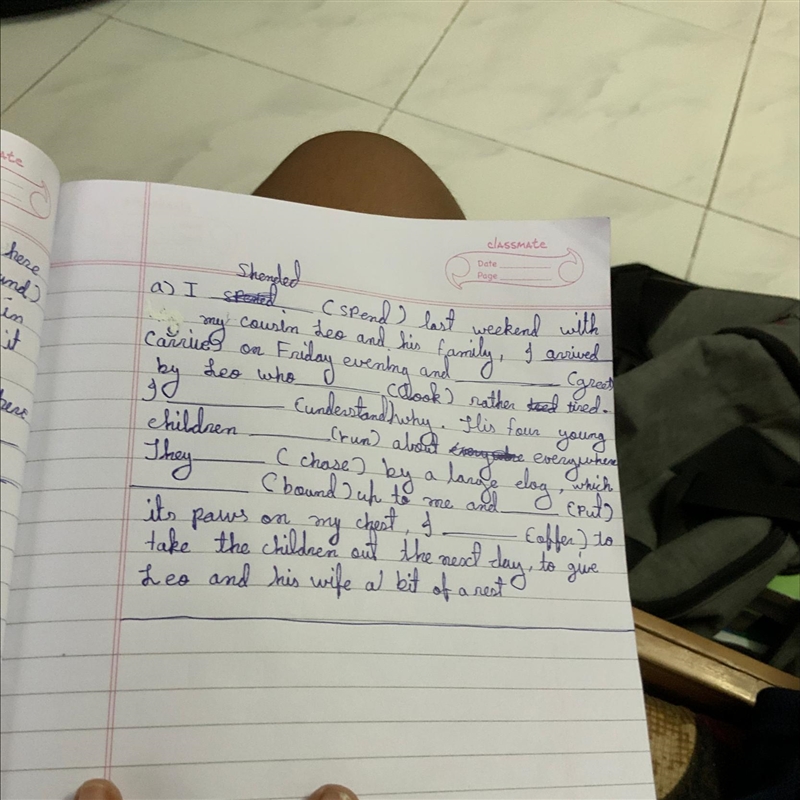 ate
here
und)
in
it
here
classmate
Date
Page
Shended
a) I ______ (spend) last weekend with
my cousin Leo and his family, I arrived
(arrive) on Friday evening and ______ (greet
by Leo who ______ (look) rather tired.
I ______ (understand) why. His four young
children ______ (run) about everywhere
They ______ (chase) by a large dog, which
______ (bound) up to me and ______ (put)
its paws on my chest, I ______ (offer) to
take the children out the next day, to give
Leo and his wife a bit of a rest